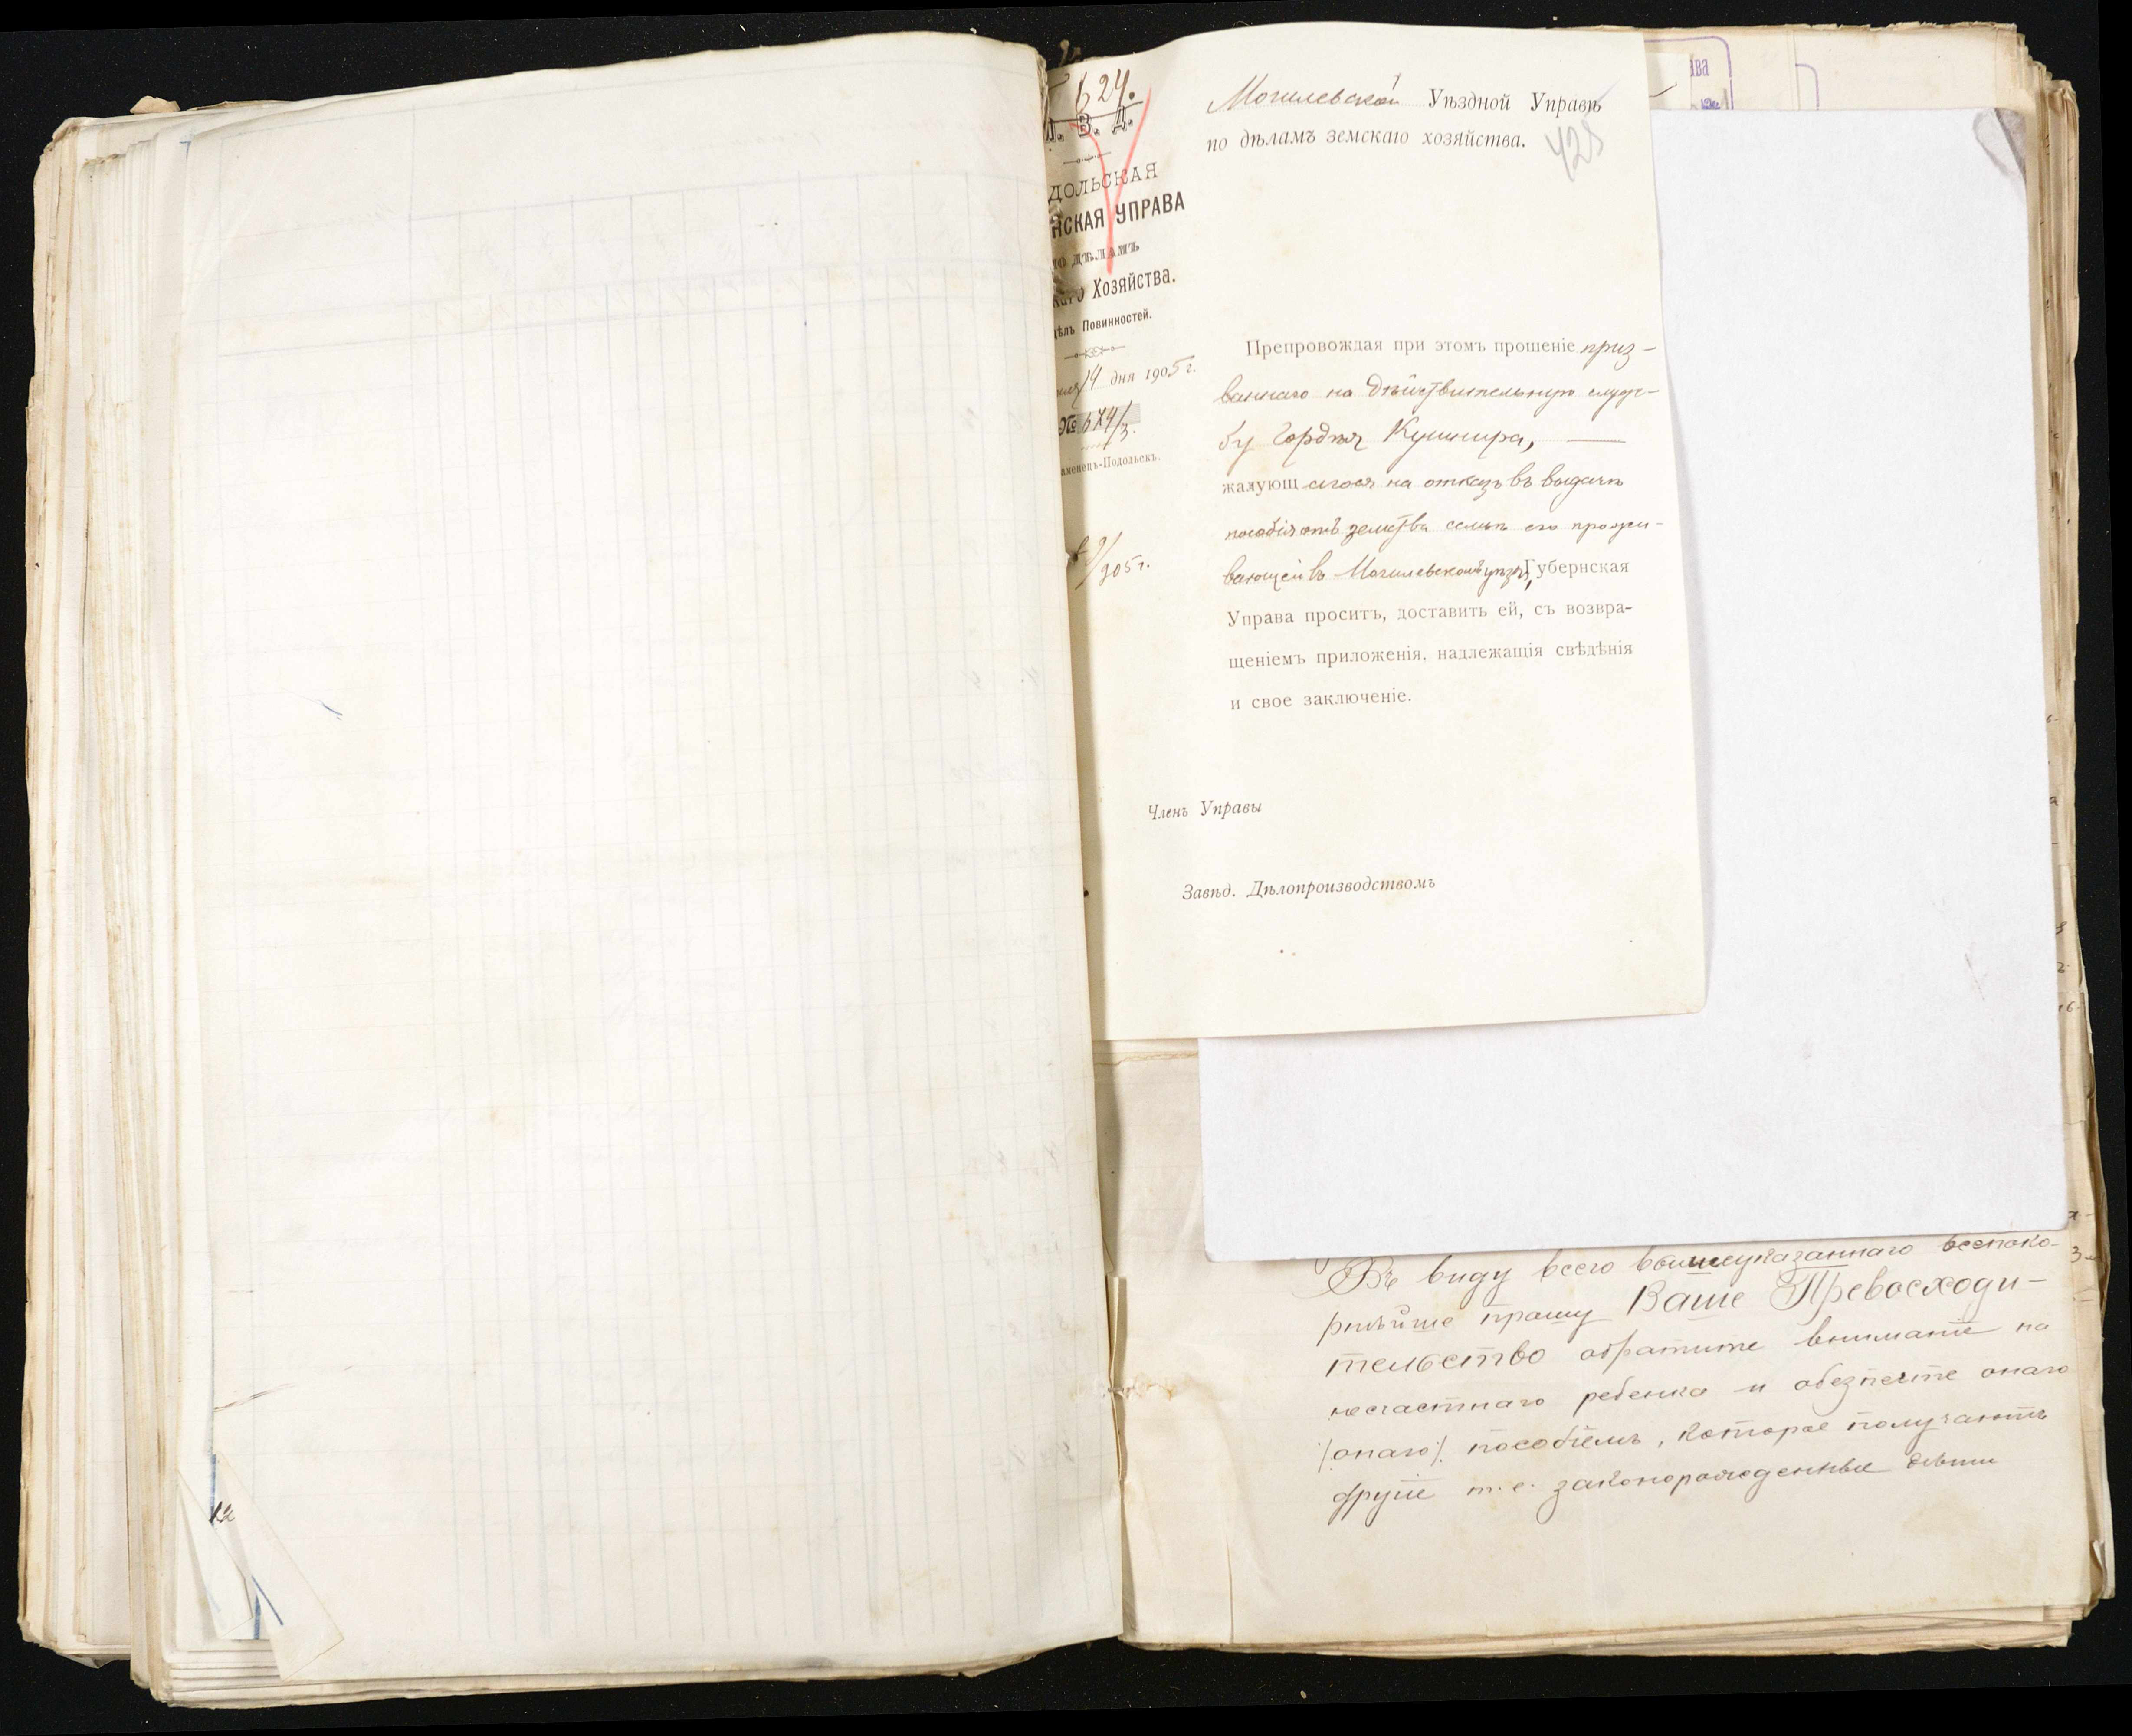 624.
В. Д.
ДОЛЬСКАЯ
НСКАЯ УПРАВА
ПО ДѢЛАМЪ
каго Хозяйства.
дѣлъ Повинностей.
14 дня 1905 г.
№ 674/3.
аменецъ-Подольскъ.
905 г.
Могилевской Уѣздной Управѣ
по дѣламъ земскаго хозяйства.
425
Препровождая при этомъ прошеніе приз-
ваннаго на дѣйствительную служ-
бу Гордѣя Кушнира,
жалующагося на отказъ въ выдачѣ
пособія отъ земства семьѣ его прожи-
вающей въ Могилевскомъ уѣздѣ, Губернская
Управа проситъ, доставить ей, съ возвра-
щеніемъ приложенія, надлежащія свѣдѣнія
и свое заключеніе.
Членъ Управы
Завѣд. Дѣлопроизводствомъ
Въ виду всего вышеуказаннаго всепоко-
рнѣйше прашу Ваше Превосходи-
тельство обратите вниманіе на
несчастнаго ребенка и обезпечте онаго
/онаго/ пособіемъ, которое получаютъ
другіе т.е. законорожденные дѣти